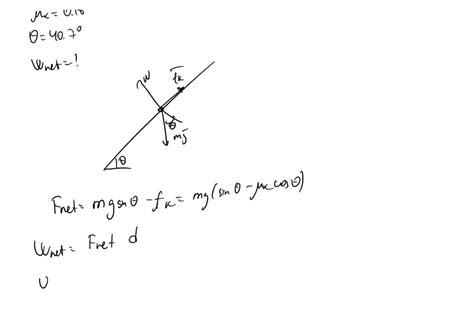 θ=40.7°
Wnet=?
N
fk
θ
mg
θ
Fnet= mgsinθ -fk= mg(sinθ-μkcosθ)
Wnet= Fnet d